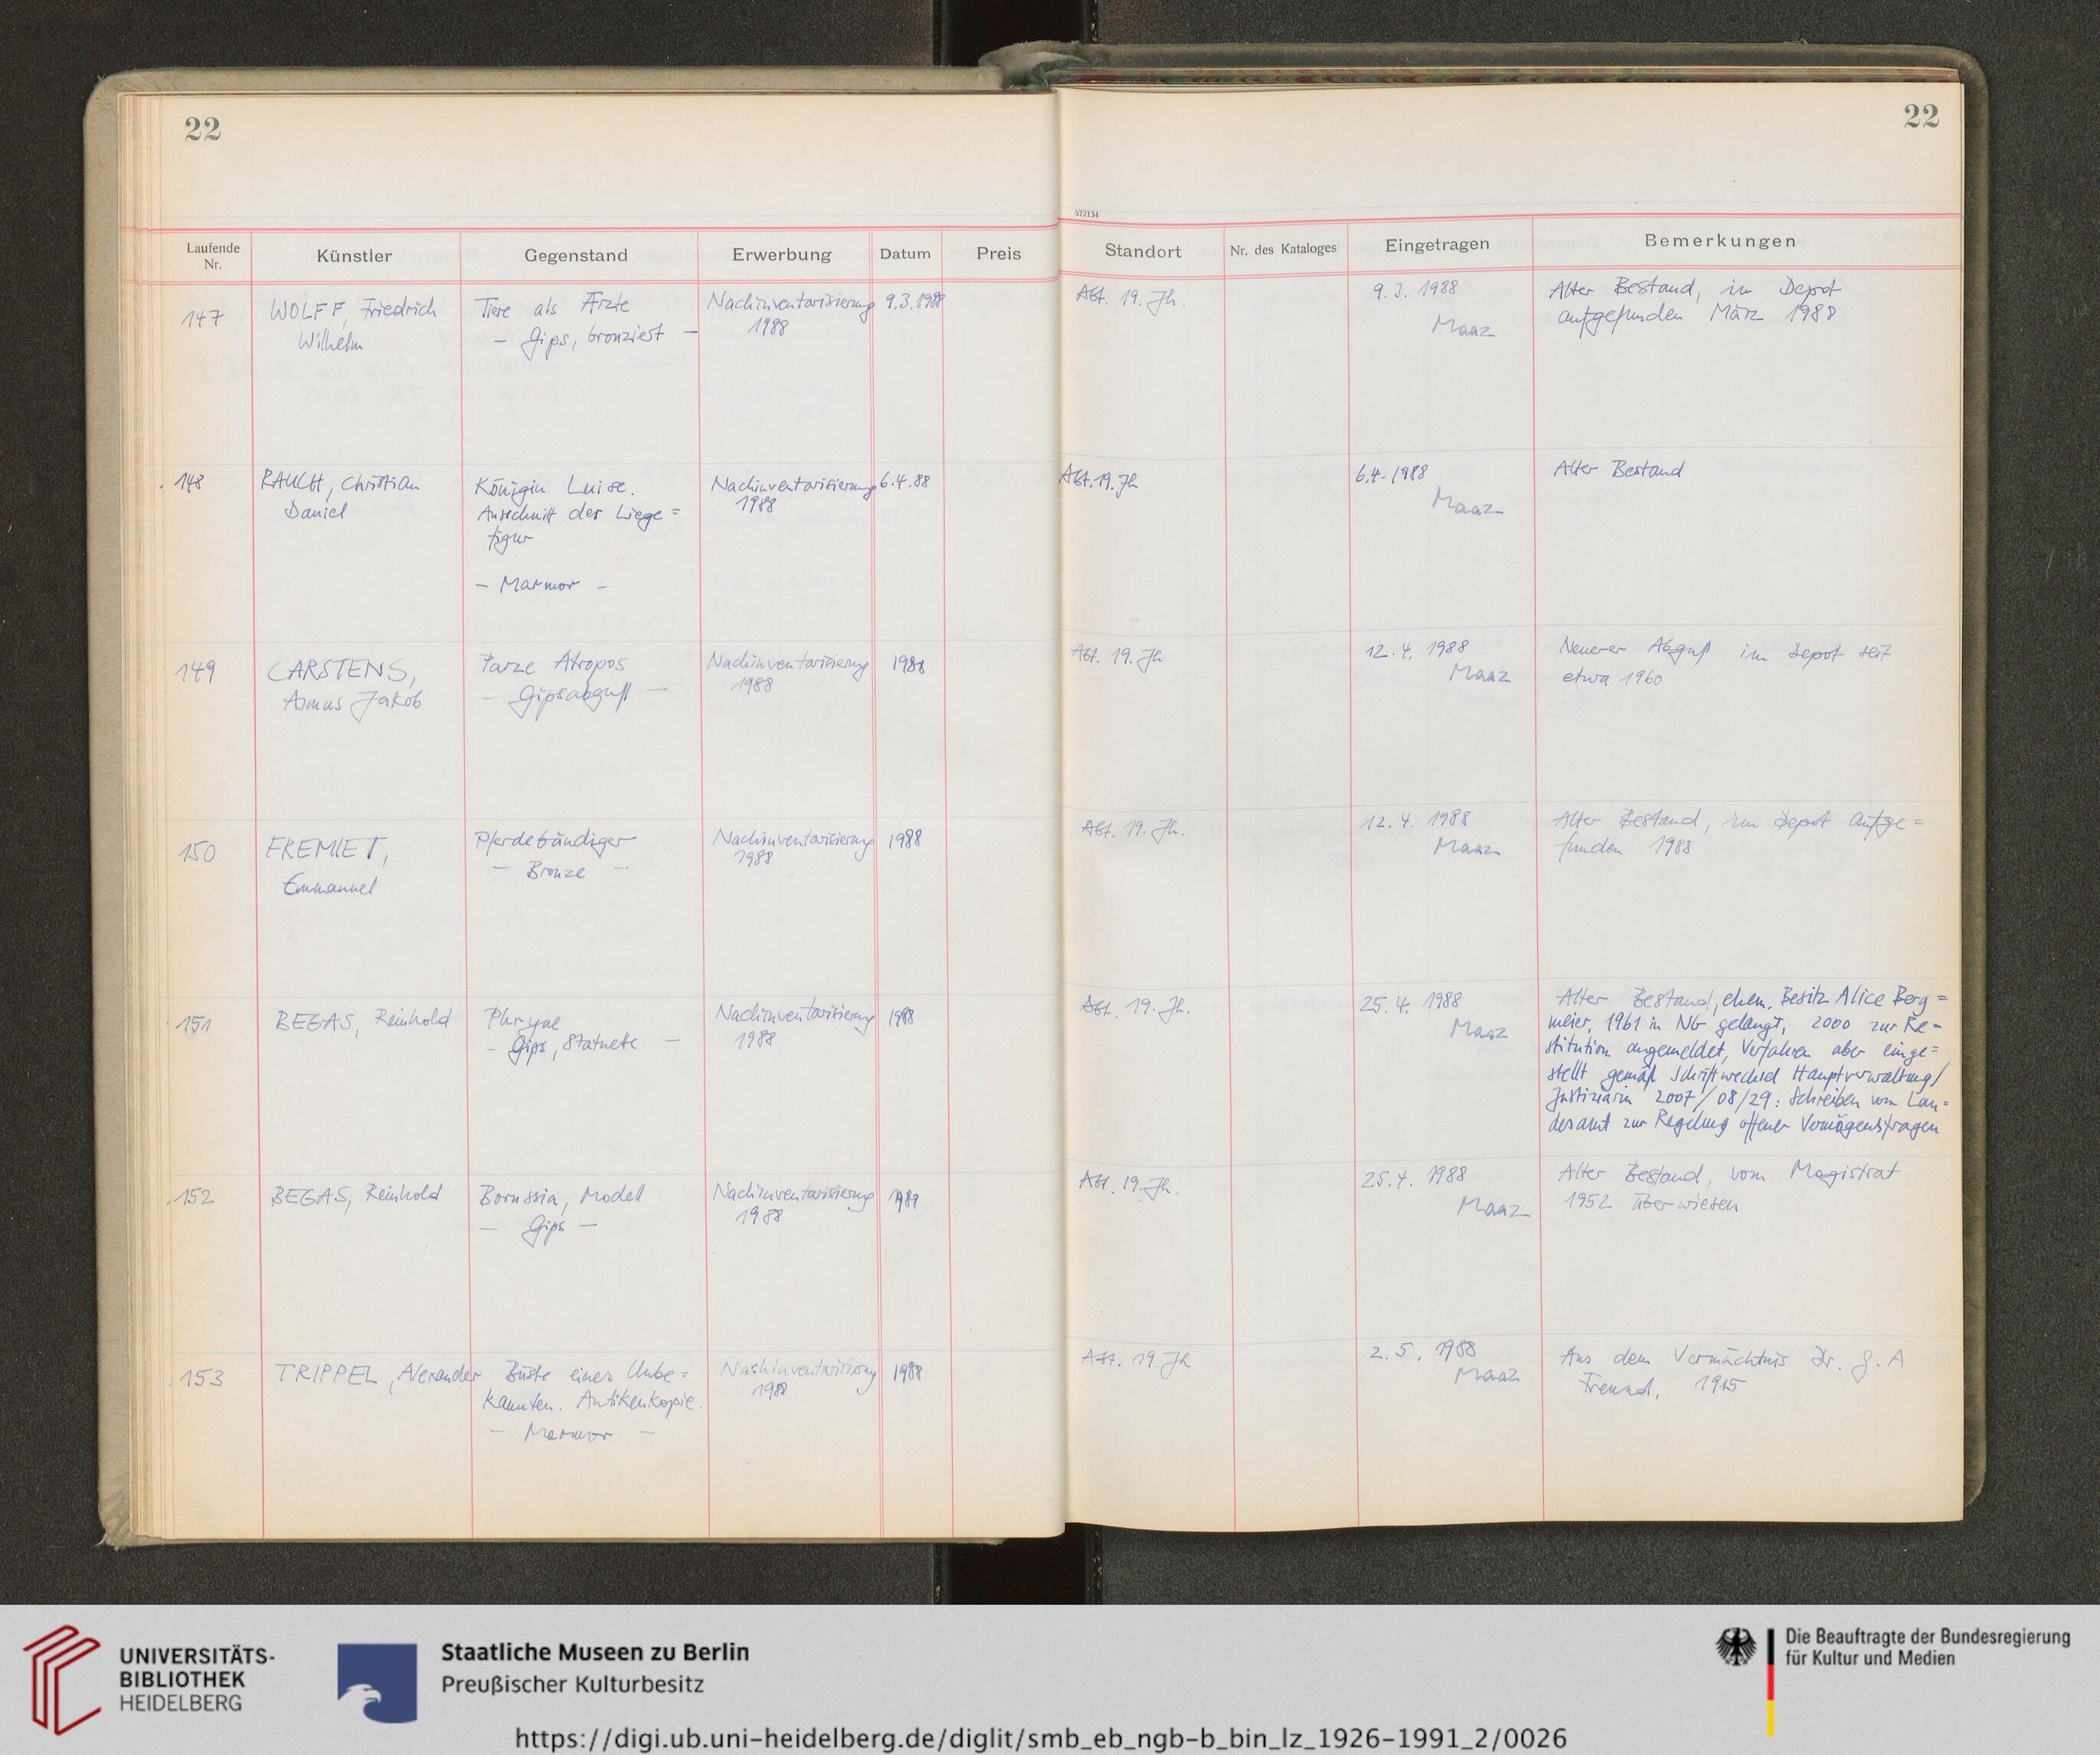 22
22
572134
Laufende
Nr.
Künstler
Gegenstand
Erwerbung
Datum
Preis
Standort
Nr. des Kataloges
Eingetragen
Bemerkungen
147
WOLFF, Friedrich
Wilhelm
Tiere als Ärzte
– Gips, bronziert –
Nachinventarisierung
1988
9.3.1988
Abt. 19. Jh.
9.3.1988
Maaz
Alter Bestand, im Depot
aufgefunden März 1988
148
RAUCH, Christian
Daniel
Königin Luise.
Ausschnitt der Liege=
figur
– Marmor –
Nachinventarisierung
1988
6.4.88
Abt. 19. Jh
6.4.1988
Maaz
Alter Bestand
149
CARSTENS,
Asmus Jakob
Parze Atropos
– Gipsabguß –
Nachinventarisierung
1988
1988
Abt. 19. Jh
12.4.1988
Maaz
Neuerer Abguß im Depot seit
etwa 1960
150
FREMIET,
Emmanuel
Pferdebändiger
– Bronze –
Nachinventarisierung
1988
1988
Abt. 19. Jh.
12.4.1988
Maaz
Alter Bestand, im Depot aufge=
funden 1988
151
BEGAS, Reinhold
Phryne
– Gips, Statuette –
Nachinventarisierung
1988
1988
Abt. 19. Jh.
25.4.1988
Maaz
Alter Bestand, ehem. Besitz Alice Berg=
meier, 1961 in NG gelangt, 2000 zur Re=
stitution angemeldet, Verfahren aber einge=
stellt gemäß Schriftwechsel Hauptverwaltung/
Justiziarin 2007/08/29: Schreiben vom Lan=
desamt zur Regelung offener Vermögensfragen
152
BEGAS, Reinhold
Borussia, Modell
– Gips –
Nachinventarisierung
1988
Abt. 19. Jh.
25.4.1988
Maaz
Alter Bestand, vom Magistrat
1952 überwiesen
153
TRIPPEL, Alexander
Büste eines Unbe=
kannten. Antikenkopie.
– Marmor –
Nachinventarisierung
1988
1988
Abt. 19. Jh
2.5.1988
Maaz
Aus dem Vermächtnis Dr. G. A
Freund, 1915
UNIVERSITÄTS-
BIBLIOTHEK
HEIDELBERG
Staatliche Museen zu Berlin
Preußischer Kulturbesitz
Die Beauftragte der Bundesregierung
für Kultur und Medien
https://digi.ub.uni-heidelberg.de/diglit/smb_eb_ngb-b_bin_lz_1926-1991_2/0026